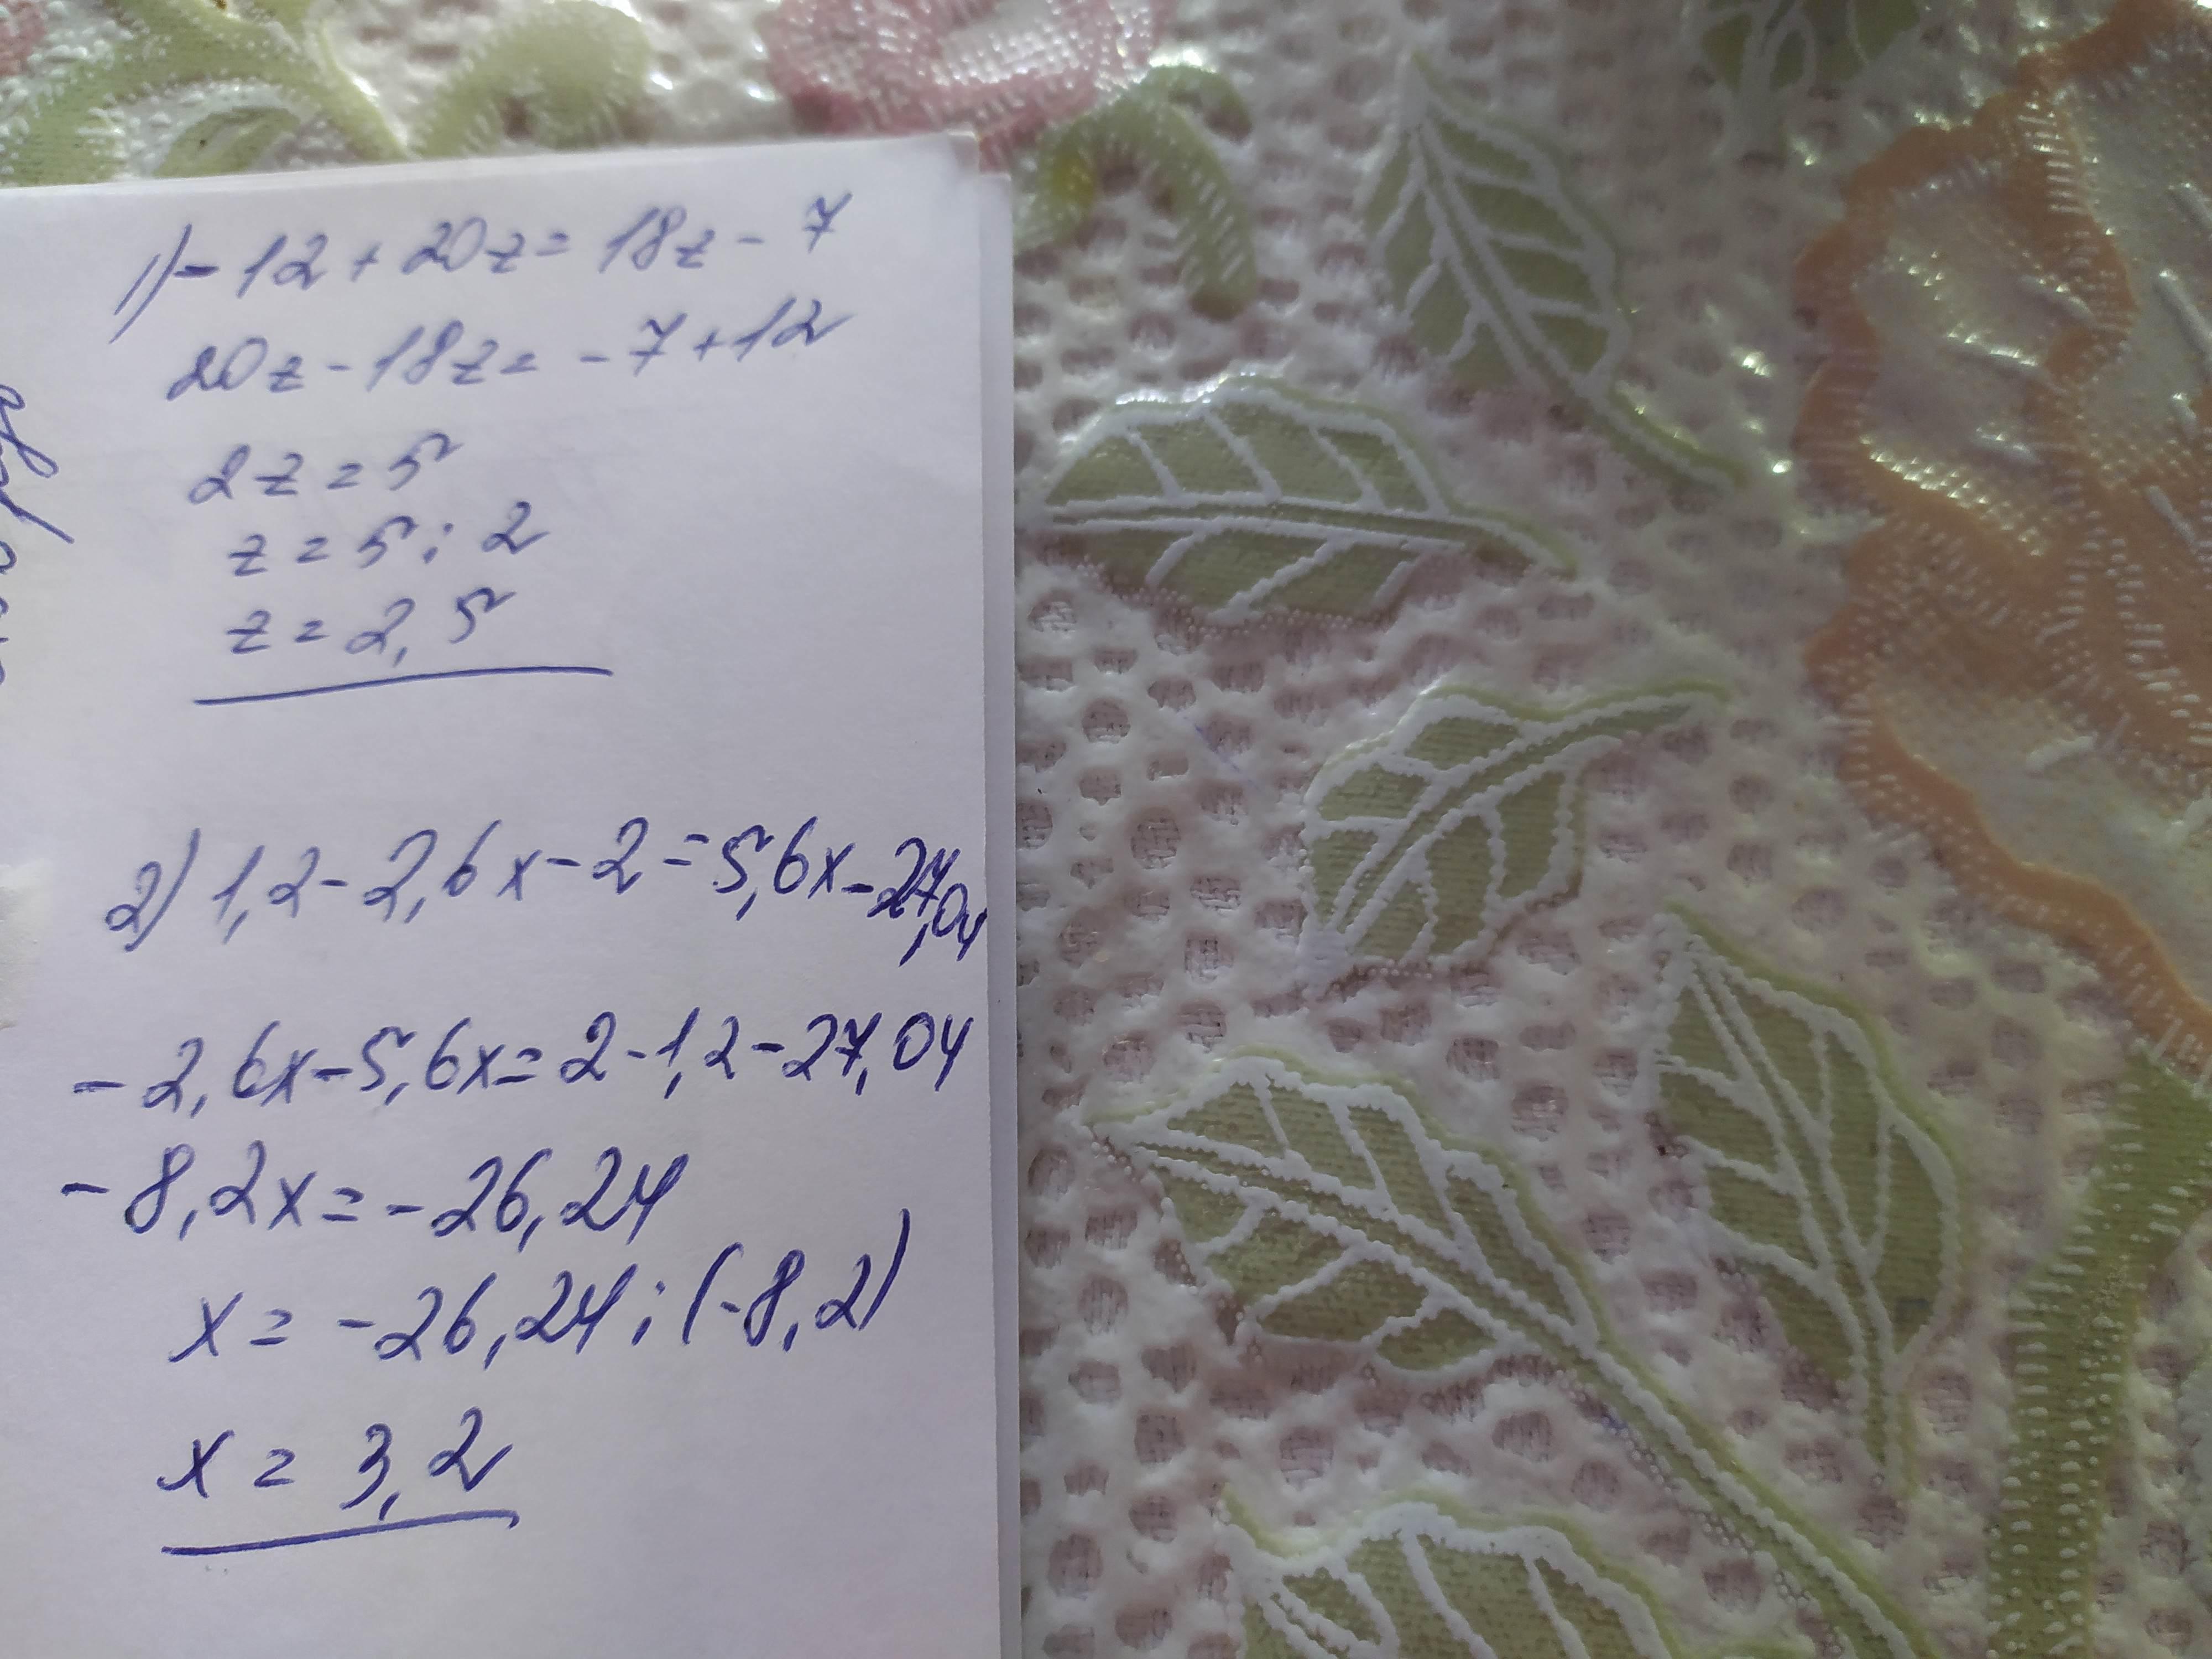 1) -12 + 20z = 18z - 7
20z - 18z = -7 + 12
2z = 5
z = 5 : 2
z = 2,5
2) 1,2 - 2,6x - 2 = 5,6x - 27,04
-2,6x - 5,6x = 2 - 1,2 - 27,04
-8,2x = -26,24
x = -26,24 : (-8,2)
x = 3,2